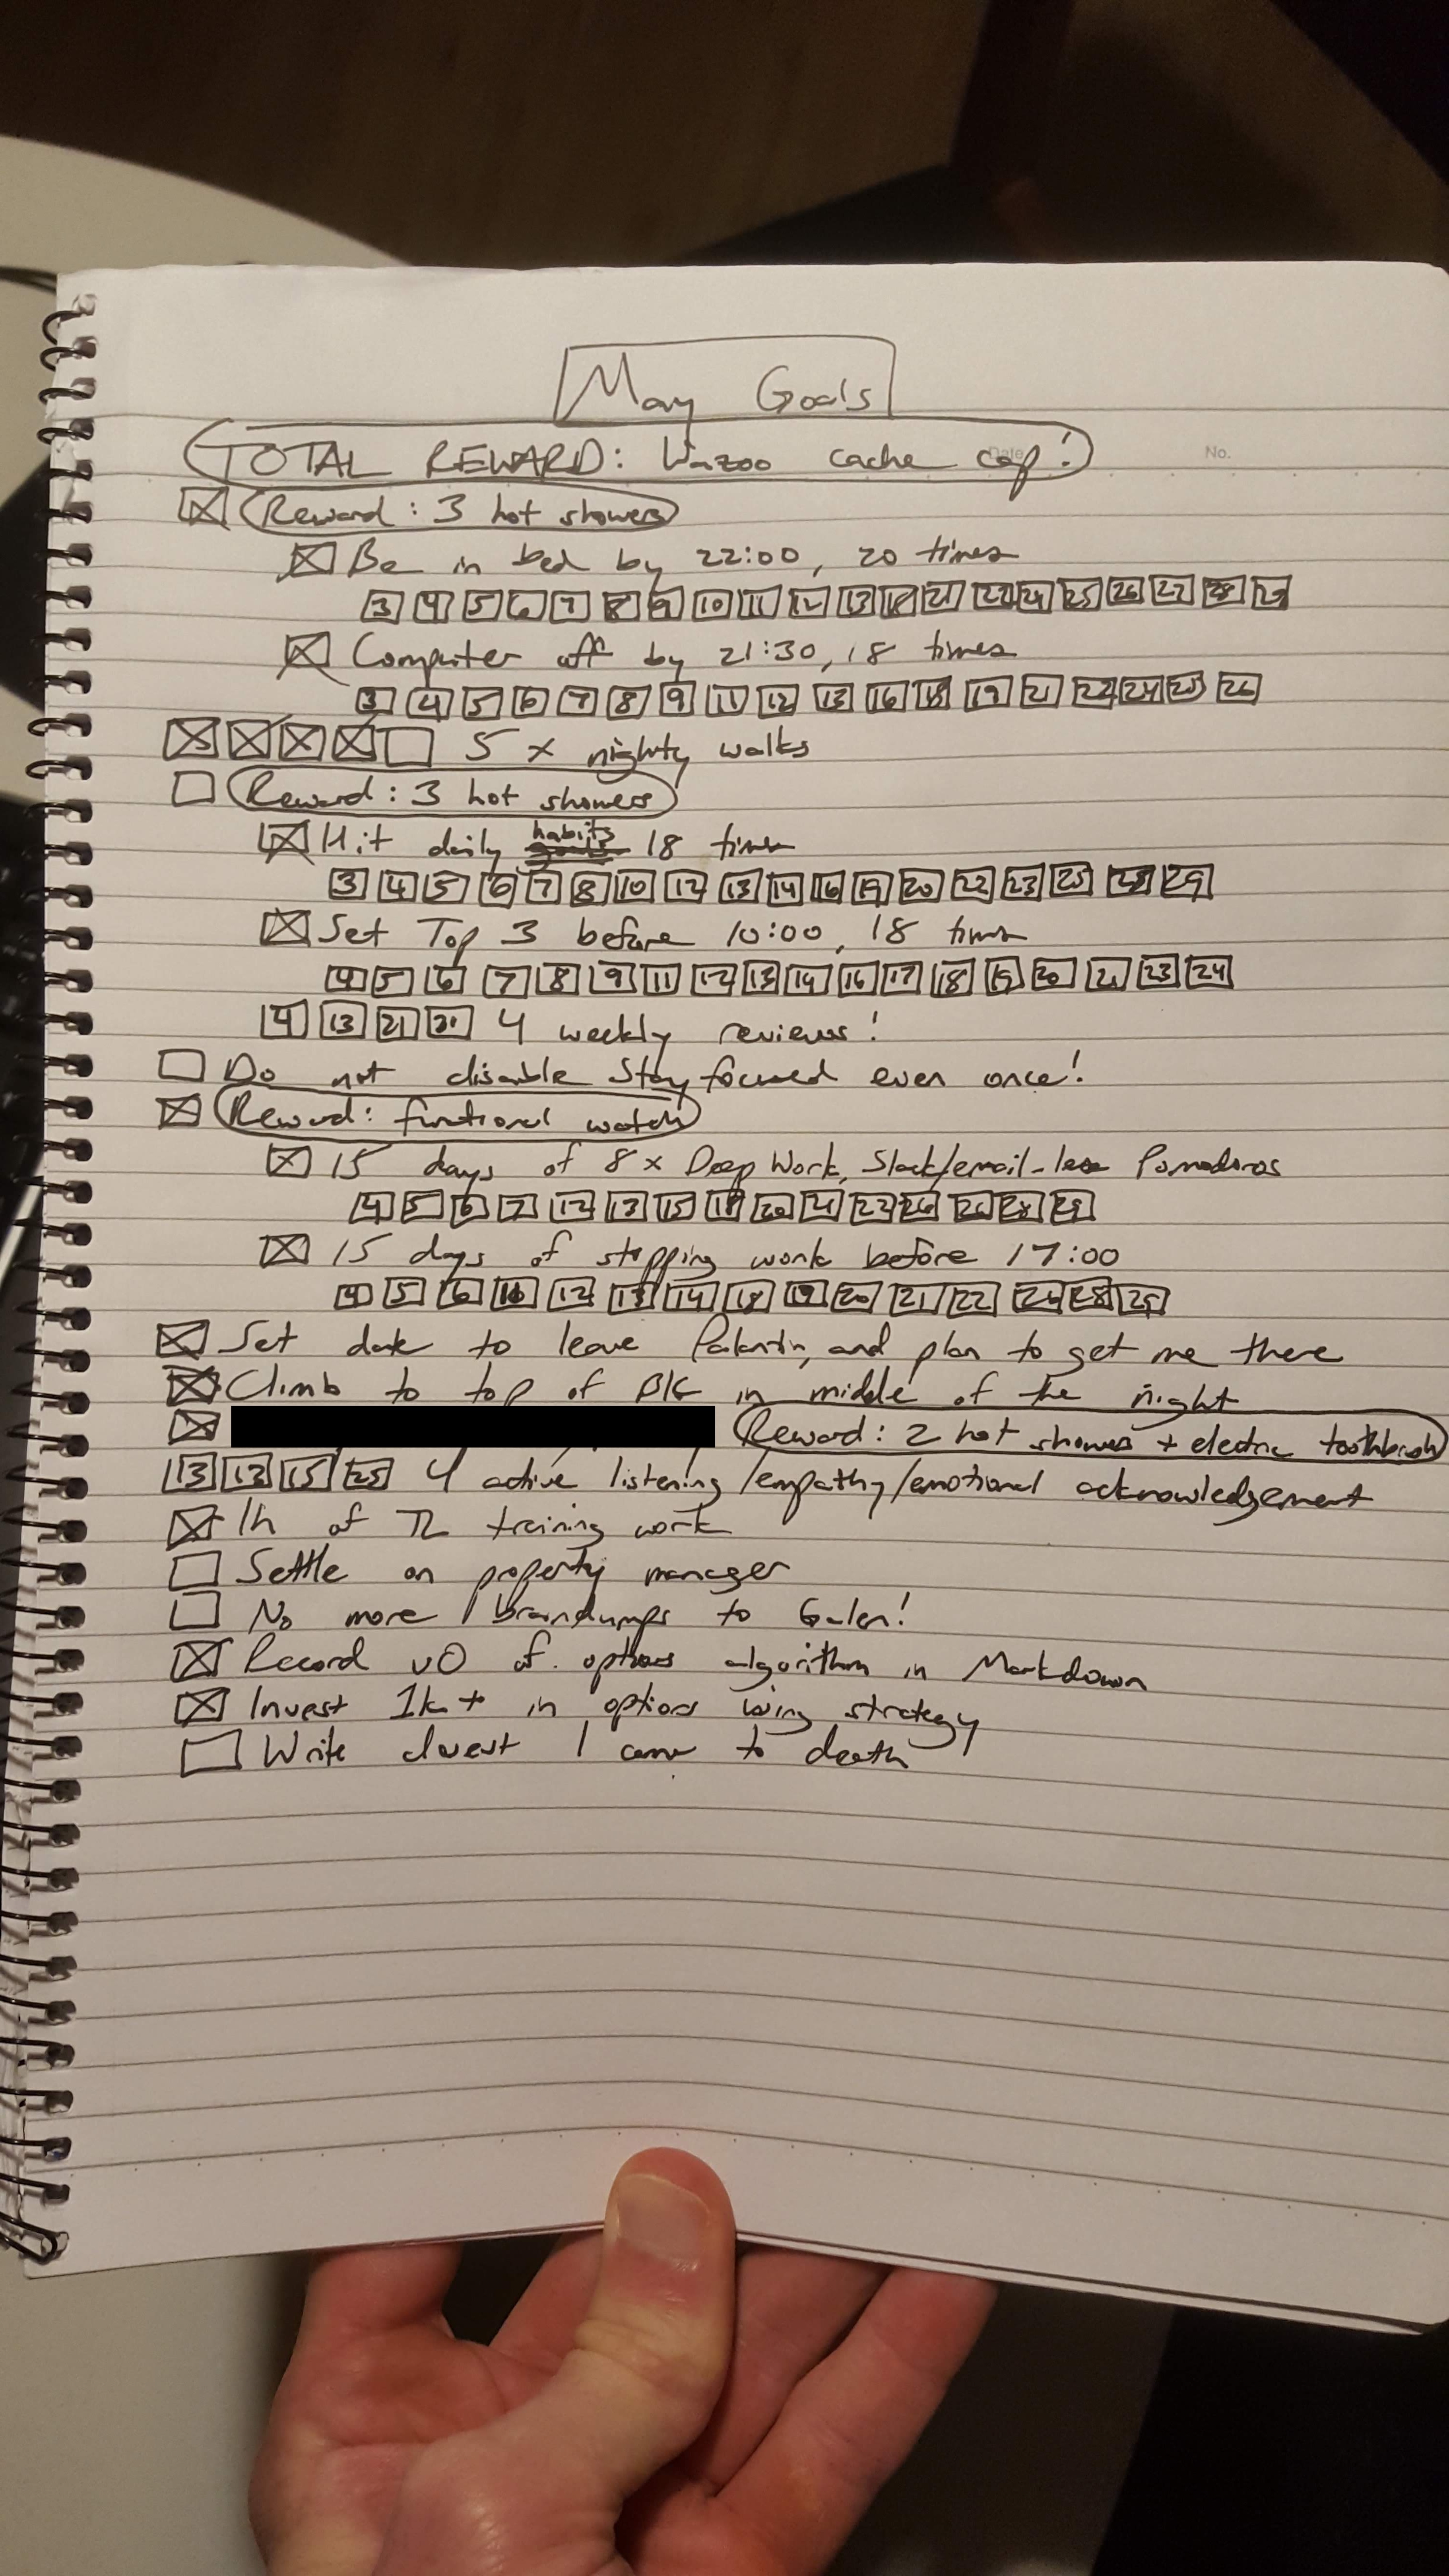 May Goals
TOTAL REWARD: Wazoo cache cap!
Date No.
Reward: 3 hot showers
Be in bed by 22:00, 20 times
3 4 5 6 7 8 9 10 11 12 13 18 21 24 25 26 27 28
Computer off by 21:30, 18 times
3 4 5 6 7 8 9 11 12 13 16 18 19 21 22 24 25 26
5 x nighty walks
Reward: 3 hot showers
Hit daily habits 18 times
3 4 5 6 7 8 10 12 13 14 16 19 20 22 23 25 28 29
Set Top 3 before 10:00, 18 times
4 5 6 7 8 9 11 12 13 14 16 17 18 19 20 21 23 24
4 13 21 4 weekly reviews!
Do not disable Stayfocused even once!
Reward: functional watch
15 days of 8x Deep Work, Slack/email-less Pomodoros
4 5 6 7 12 13 15 20 21 22 28 29
15 days of stopping work before 17:00
4 5 6 10 12 13 14 18 19 20 21 22 26 28 29
Set date to leave Palantir, and plan to get me there
Climb to top of in middle of the night
Reward: 2 hot showers + electric toothbrush
13 13 15 25 4 active listening/empathy/emotional acknowledgement
1h of TL training work
Settle on property manager
No more braindumps to Galen!
Record v0 of options algorithm in Markdown
Invest 1k+ in options using strategy
Write closest I came to death